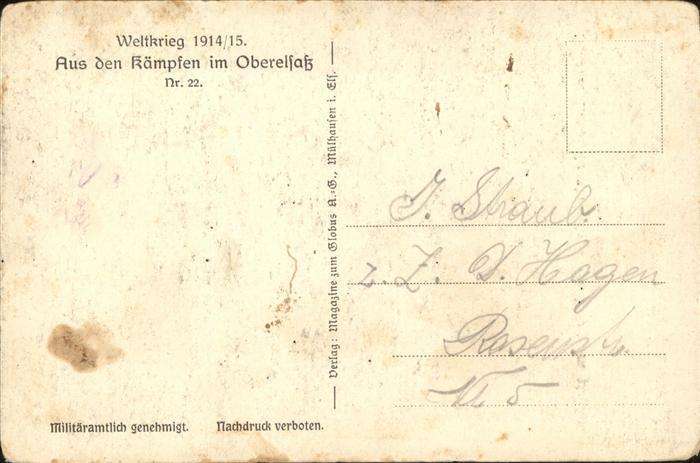 Weltkrieg 1914/15.
Aus den Kämpfen im Oberelsaß
Nr. 22.
Militäramtlich genehmigt. Nachdruck verboten.
Verlag: Magazine zum Globus A.-G., Mülhausen i. Els.
J. Straub.
z. Z. D. Hagen
Rosenstr.
No 5